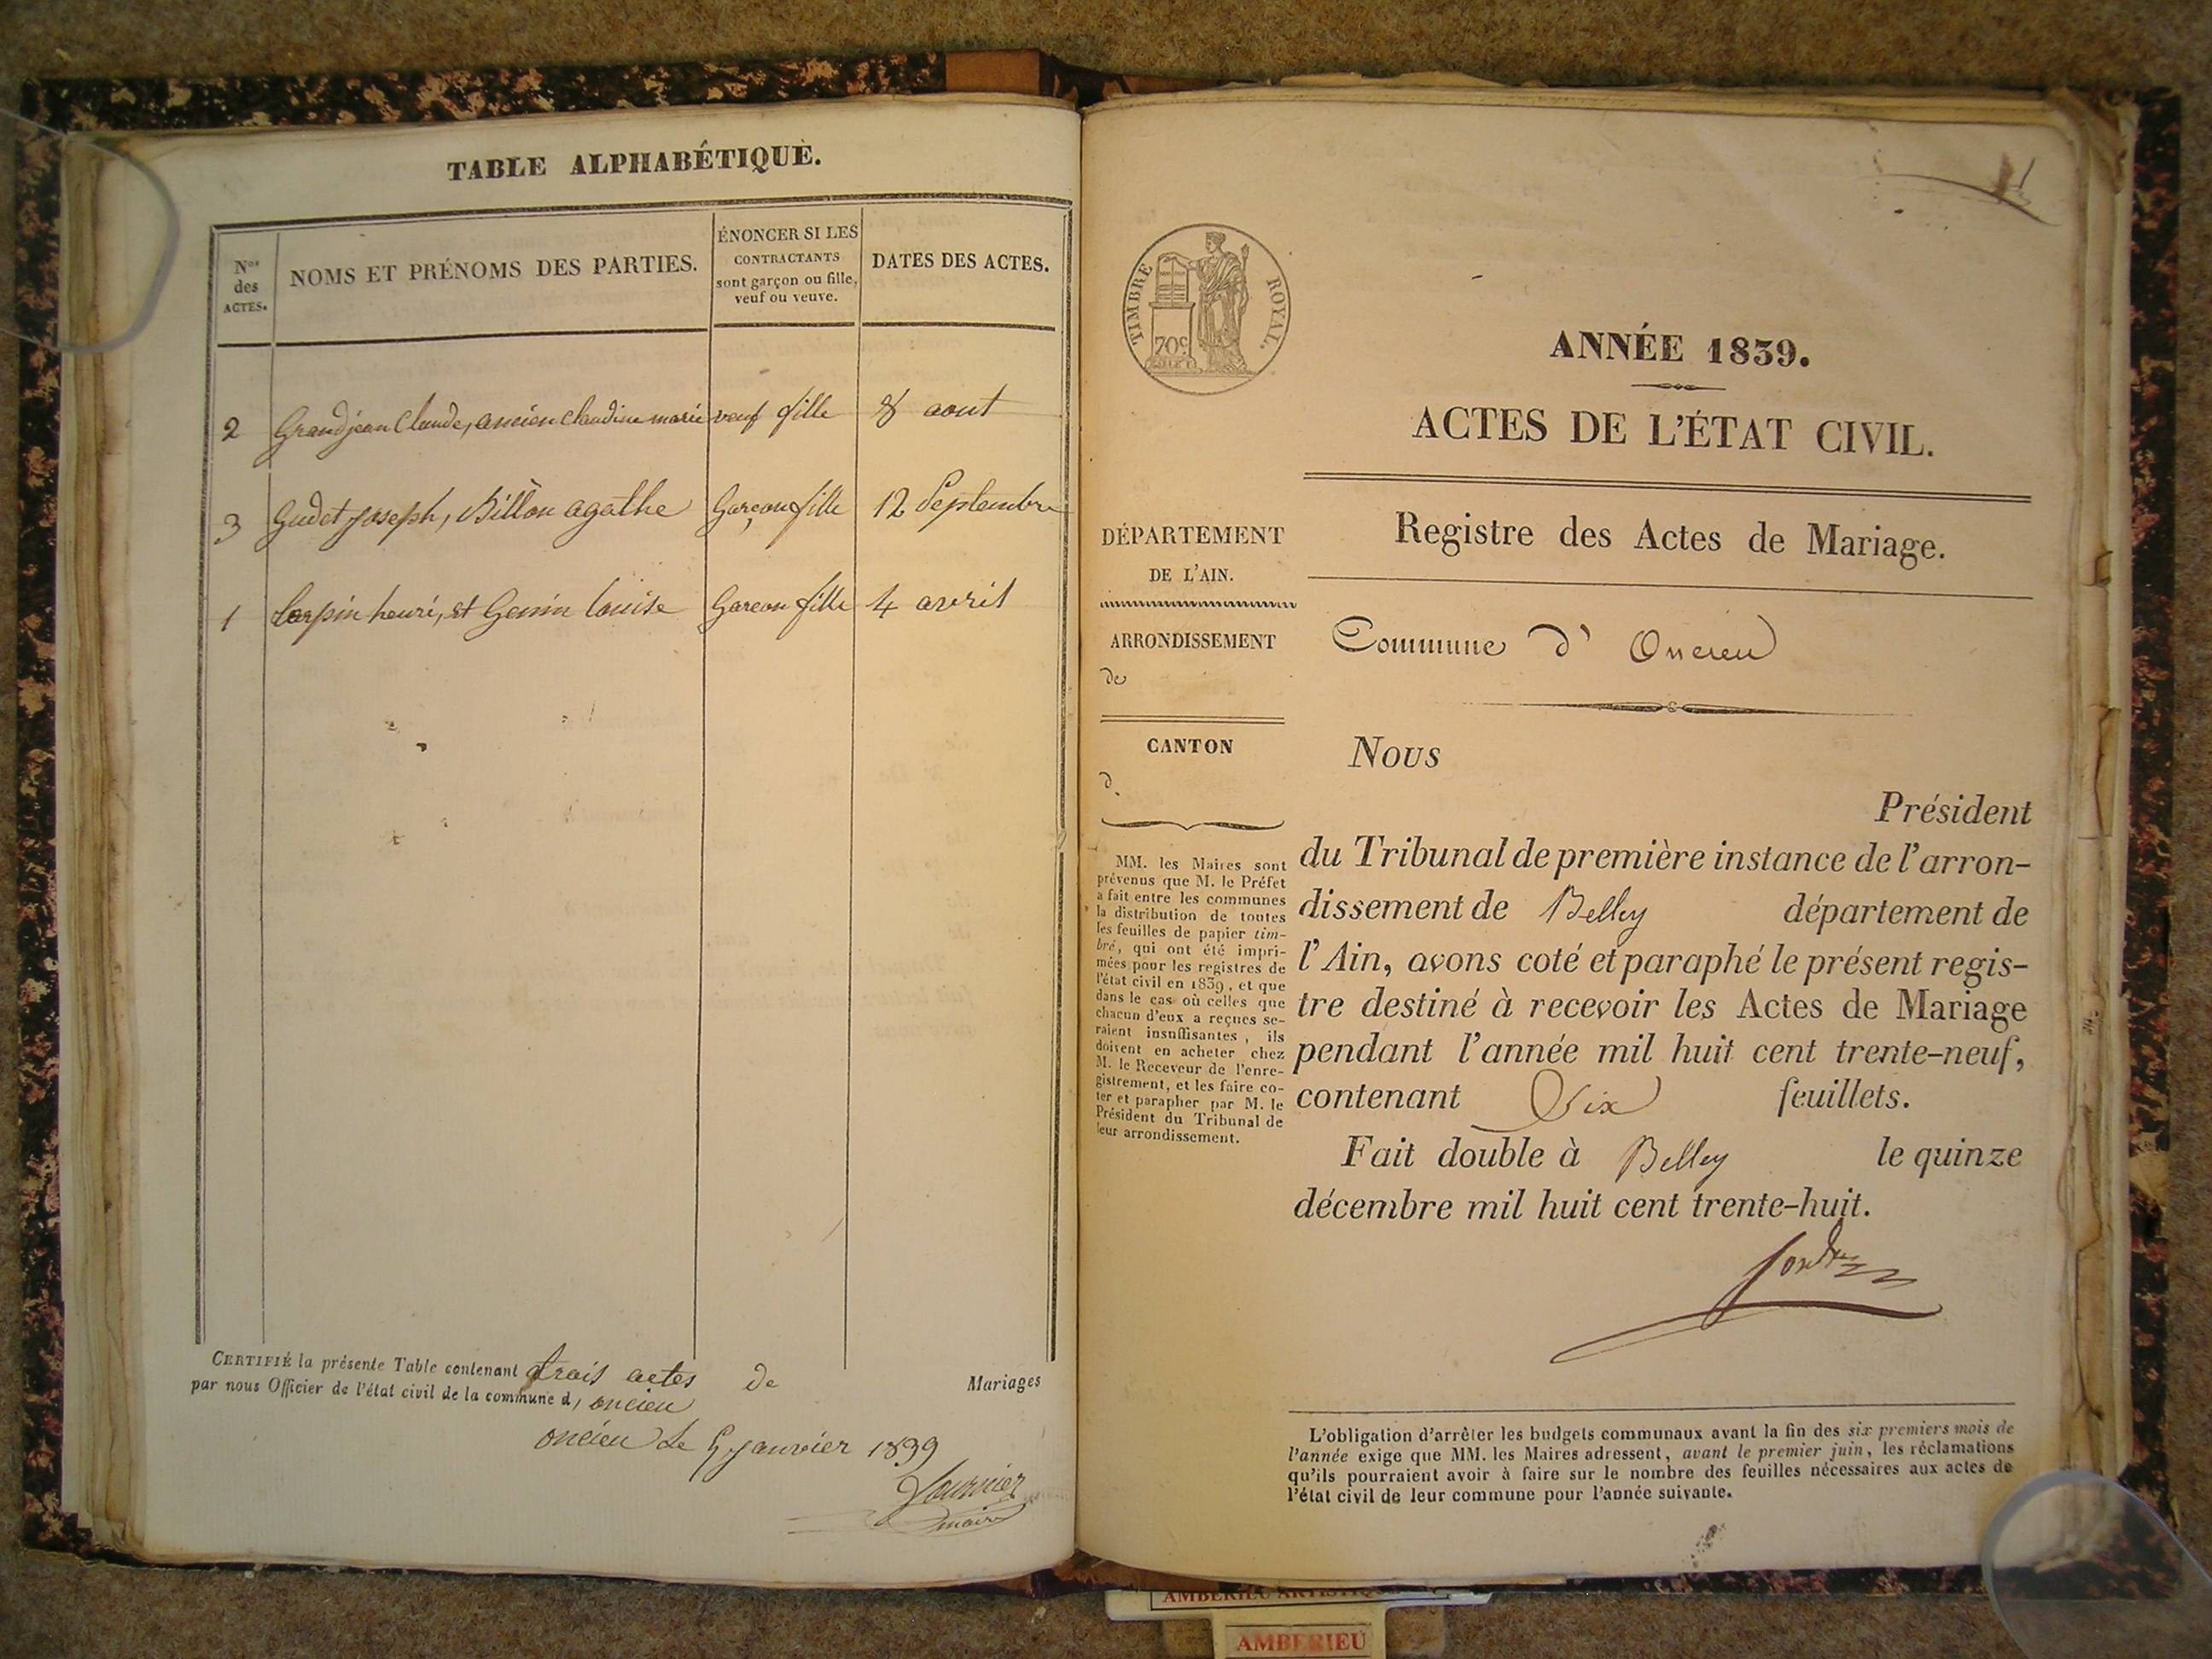 TABLE ALPHABÉTIQUE.
Nos des ACTES.
NOMS ET PRÉNOMS DES PARTIES.
ÉNONCER SI LES
CONTRACTANTS
sont garçon ou fille,
veuf ou veuve.
DATES DES ACTES.
2 Grandjean Claude, ancien Claudine marie veuf fille 8 aout
3 Gudet joseph, Billon agathe Garçon fille 12 Septembre
1 Carpin henri, et Genin louise Garcon fille 4 avril
CERTIFIÉ la présente Table contenant trois actes de Mariages
par nous Officier de l'état civil de la commune d, oncieu
oncieu Le 5 janvier 1839
Fournier
maire
TIMBRE ROYAL.
70c
ANNÉE 1839.
ACTES DE L'ÉTAT CIVIL.
Registre des Actes de Mariage.
DÉPARTEMENT
DE L'AIN.
ARRONDISSEMENT
de
CANTON
d.
MM. les Maires sont
prévenus que M. le Préfet
a fait entre les communes
la distribution de toutes
les feuilles de papier tim-
bré, qui ont été impri-
mées pour les registres de
l'état civil en 1839, et que
dans le cas où celles que
chacun d'eux a reçues se-
raient insuffisantes, ils
doivent en acheter chez
M. le Receveur de l'enre-
gistrement, et les faire co-
ter et parapher par M. le
Président du Tribunal de
leur arrondissement.
Commune d' Oncieu
Nous
Président
du Tribunal de première instance de l'arron-
dissement de Belley département de
l'Ain, avons coté et paraphé le présent regis-
tre destiné à recevoir les Actes de Mariage
pendant l'année mil huit cent trente-neuf,
contenant Six feuillets.
Fait double à Belley le quinze
décembre mil huit cent trente-huit.
L'obligation d'arrêter les budgets communaux avant la fin des six premiers mois de
l'année exige que MM. les Maires adressent, avant le premier juin, les réclamations
qu'ils pourraient avoir à faire sur le nombre des feuilles nécessaires aux actes de
l'état civil de leur commune pour l'année suivante.
AMBERIEU ARTISTIQUE
AMBERIEU